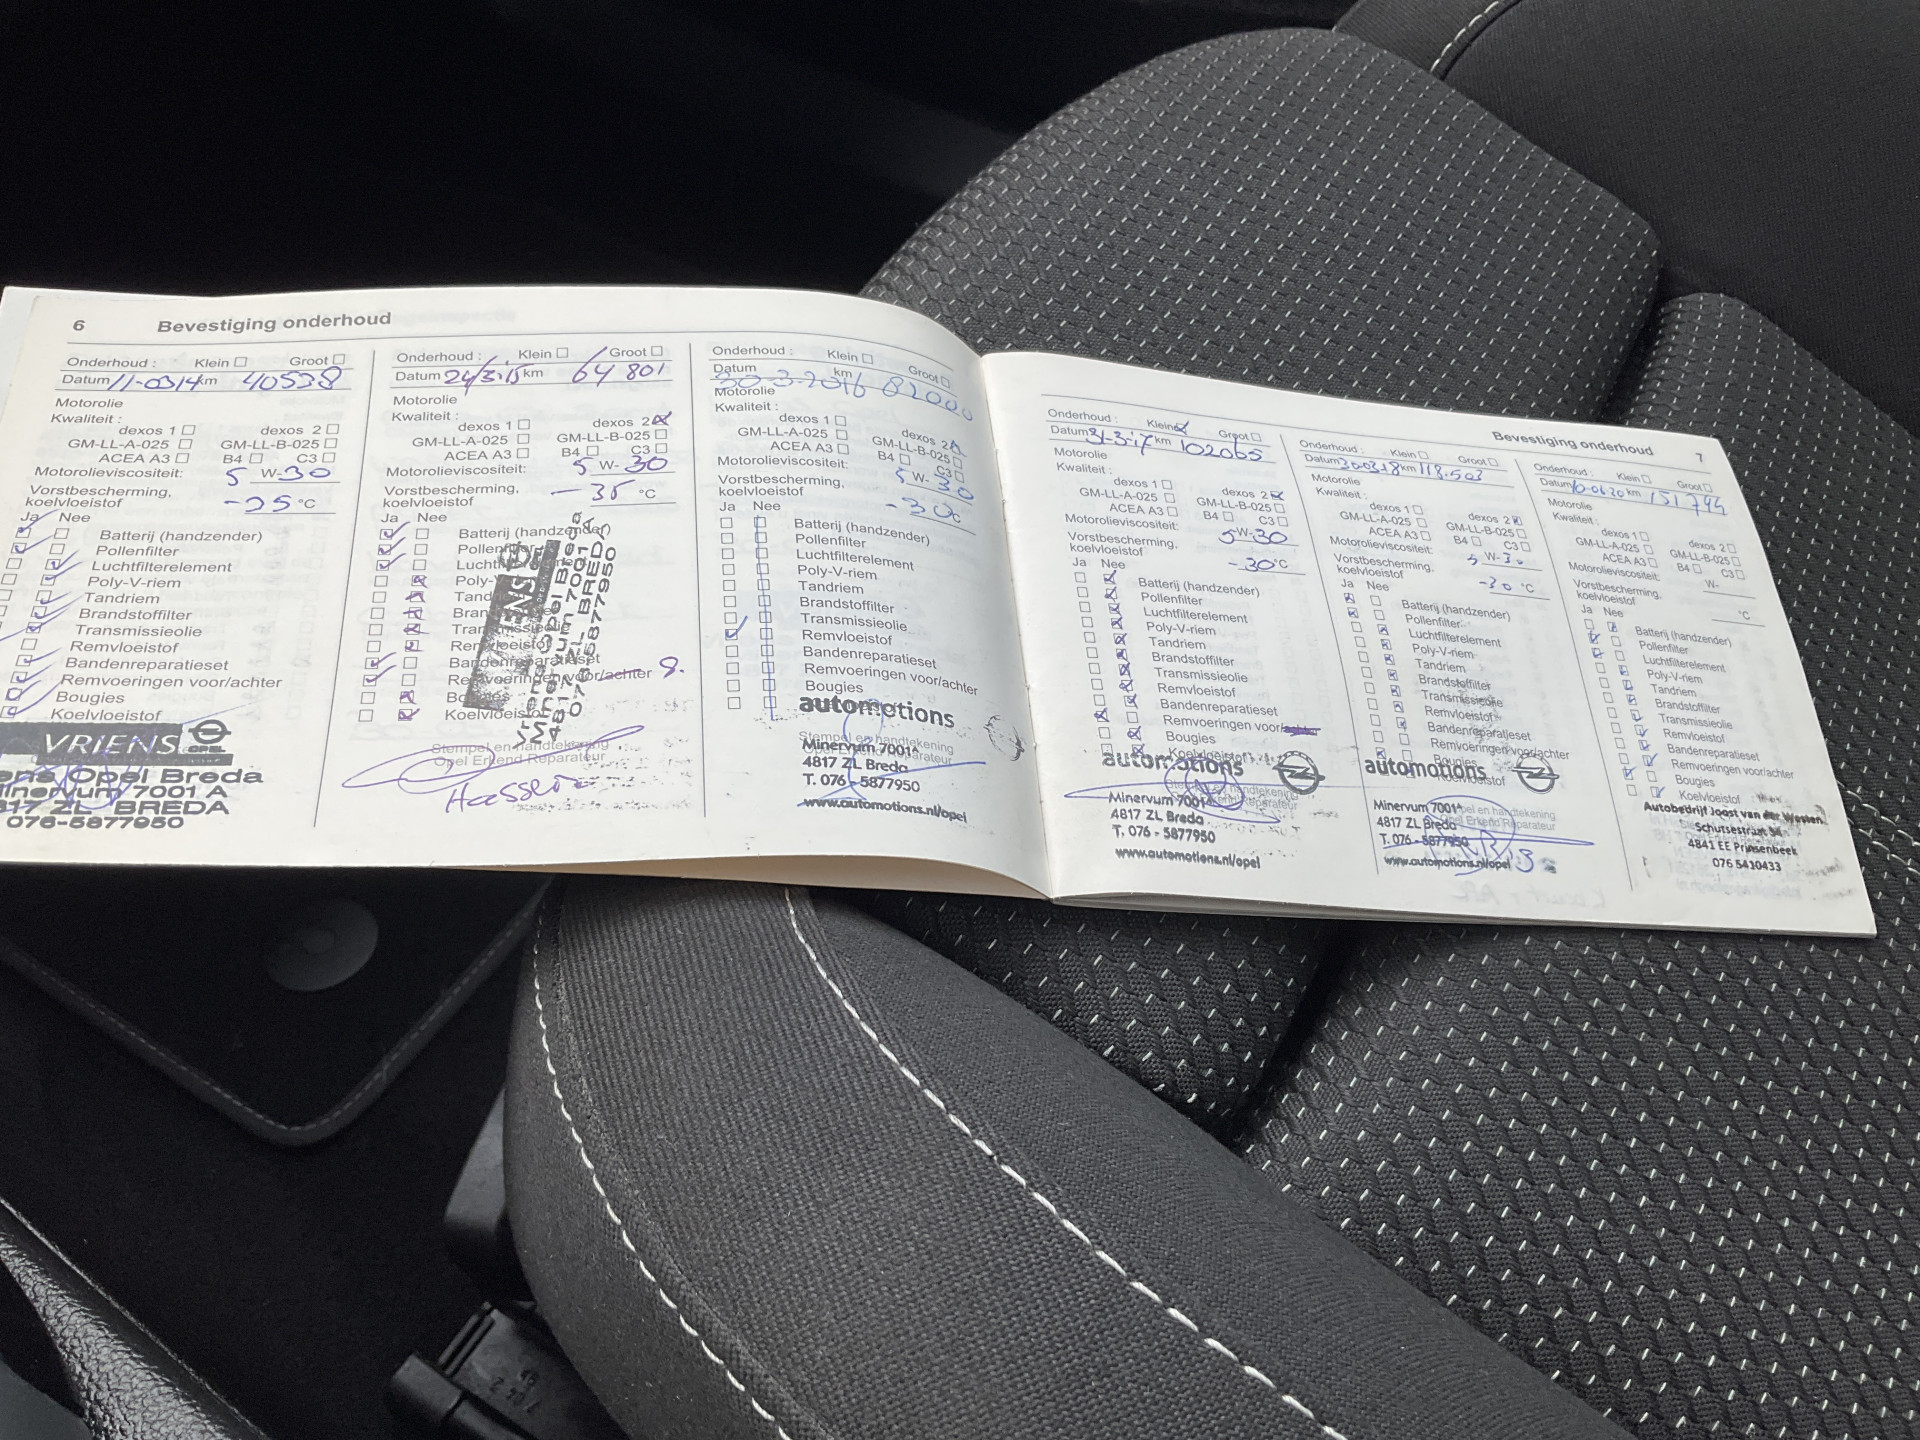 6 Bevestiging onderhoud
Onderhoud : Klein Groot
Datum 11-0314 km 40538
Motorolie
Kwaliteit :
dexos 1 dexos 2
GM-LL-A-025 GM-LL-B-025
ACEA A3 B4 C3
Motorolieviscositeit: 5 W-30
Vorstbescherming,
koelvloeistof -25 °C
Ja Nee
Batterij (handzender)
Pollenfilter
Luchtfilterelement
Poly-V-riem
Tandriem
Brandstoffilter
Transmissieolie
Remvloeistof
Bandenreparatieset
Remvoeringen voor/achter
Bougies
Koelvloeistof
VRIENS OPEL
Opel Breda
7001 A
ZL BREDA
076-5877950
Onderhoud : Klein Groot
Datum 24/3-15 km 64801
Motorolie
Kwaliteit :
dexos 1 dexos 2
GM-LL-A-025 GM-LL-B-025
ACEA A3 B4 C3
Motorolieviscositeit: 5 W-30
Vorstbescherming,
koelvloeistof -35 °C
Ja Nee
Batterij (handzender)
Pollenfilter
Poly-
Transmissieolie
Remvloeistof
Bandenreparatieset
Remvoeringen voor/achter
Koelvloeistof
Vriens Opel Breda
Minervum 7001
4817 ZL BREDA
076-5877950
Stempel en handtekening
Opel Erkend Reparateur
Onderhoud : Klein Groot
Datum 30-3-2016 km 82000
Motorolie
Kwaliteit :
dexos 1 dexos 2
GM-LL-A-025 GM-LL-B-025
ACEA A3 B4 C3
Motorolieviscositeit: 5 W-30
Vorstbescherming,
koelvloeistof -30 °C
Ja Nee
Batterij (handzender)
Pollenfilter
Luchtfilterelement
Poly-V-riem
Tandriem
Brandstoffilter
Transmissieolie
Remvloeistof
Bandenreparatieset
Remvoeringen voor/achter
Bougies
automotions
Stempel en handtekening
Minervum 7001A
4817 ZL Breda
T. 076 - 5877950
www.automotions.nl/opel
Bevestiging onderhoud 7
Onderhoud : Klein Groot
Datum 31-3-17 km 102065
Motorolie
Kwaliteit :
dexos 1 dexos 2
GM-LL-A-025 GM-LL-B-025
ACEA A3 B4 C3
Motorolieviscositeit: 5 W-30
Vorstbescherming,
koelvloeistof -30 °C
Ja Nee
Batterij (handzender)
Pollenfilter
Luchtfilterelement
Poly-V-riem
Tandriem
Brandstoffilter
Transmissieolie
Remvloeistof
Bandenreparatieset
Remvoeringen voor/achter
Bougies
Koelvloeistof
automotions
Minervum 7001A
4817 ZL Breda
T. 076 - 5877950
www.automotions.nl/opel
Onderhoud : Klein Groot
Datum 300318 km 118.503
Motorolie
Kwaliteit :
dexos 1 dexos 2
GM-LL-A-025 GM-LL-B-025
ACEA A3 B4 C3
Motorolieviscositeit: 5 W-30
Vorstbescherming,
koelvloeistof -30 °C
Ja Nee
Batterij (handzender)
Pollenfilter
Luchtfilterelement
Poly-V-riem
Tandriem
Brandstoffilter
Transmissieolie
Remvloeistof
Bandenreparatieset
Remvoeringen voor/achter
Bougies
Koelvloeistof
automotions
Minervum 7001A
4817 ZL Breda
T. 076 - 5877950
www.automotions.nl/opel
Stempel en handtekening
Opel Erkend Reparateur
Onderhoud : Klein Groot
Datum 10-06-20 km 151794
Motorolie
Kwaliteit :
dexos 1 dexos 2
GM-LL-A-025 GM-LL-B-025
ACEA A3 B4 C3
Motorolieviscositeit: W-
Vorstbescherming,
koelvloeistof °C
Ja Nee
Batterij (handzender)
Pollenfilter
Luchtfilterelement
Poly-V-riem
Tandriem
Brandstoffilter
Transmissieolie
Remvloeistof
Bandenreparatieset
Remvoeringen voor/achter
Bougies
Koelvloeistof
Autobedrijf Joost van der Westen
Schutsestraat
4841 EE Prinsenbeek
076 5410433